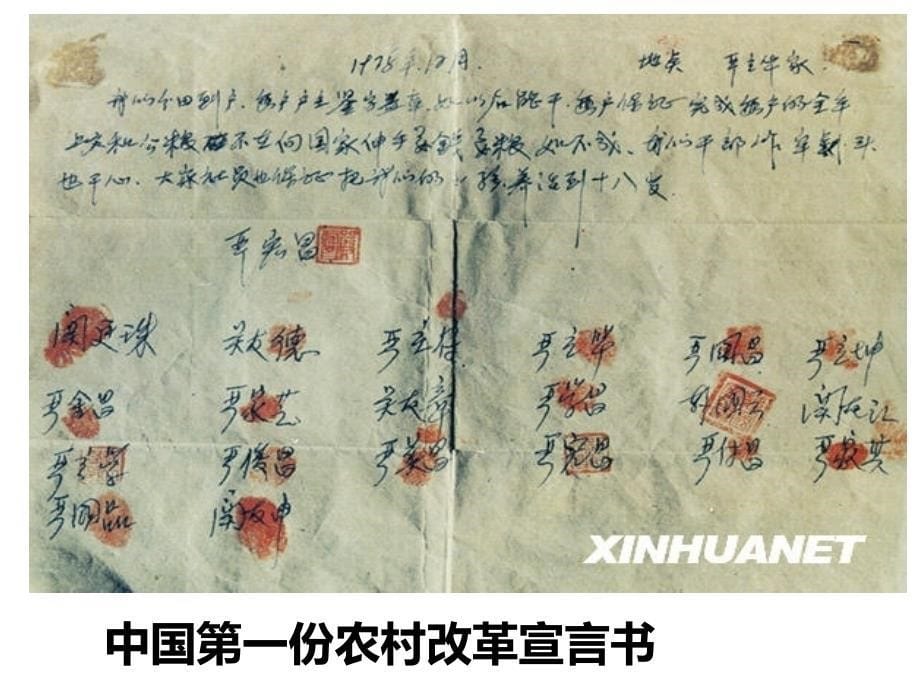 1978年12月. 地点 严立华家
我们分田到户,每户户主签字盖章,如以后能干,每户保证完成每户的全年
上交和公粮不在向国家伸手要钱要粮如不成,我们干部作牢剎头
也干心,大家社员也保证把我们的小孩养活到十八岁.
严宏昌
关廷珠 关友德 严立符 严立华 严国昌 严立坤
严金昌 严家芝 关友章 严学昌 韩国云 关友江
严立学 严俊昌 严美昌 严宏昌 严付昌 严家其
严国品 关友申
XINHUANET
中国第一份农村改革宣言书